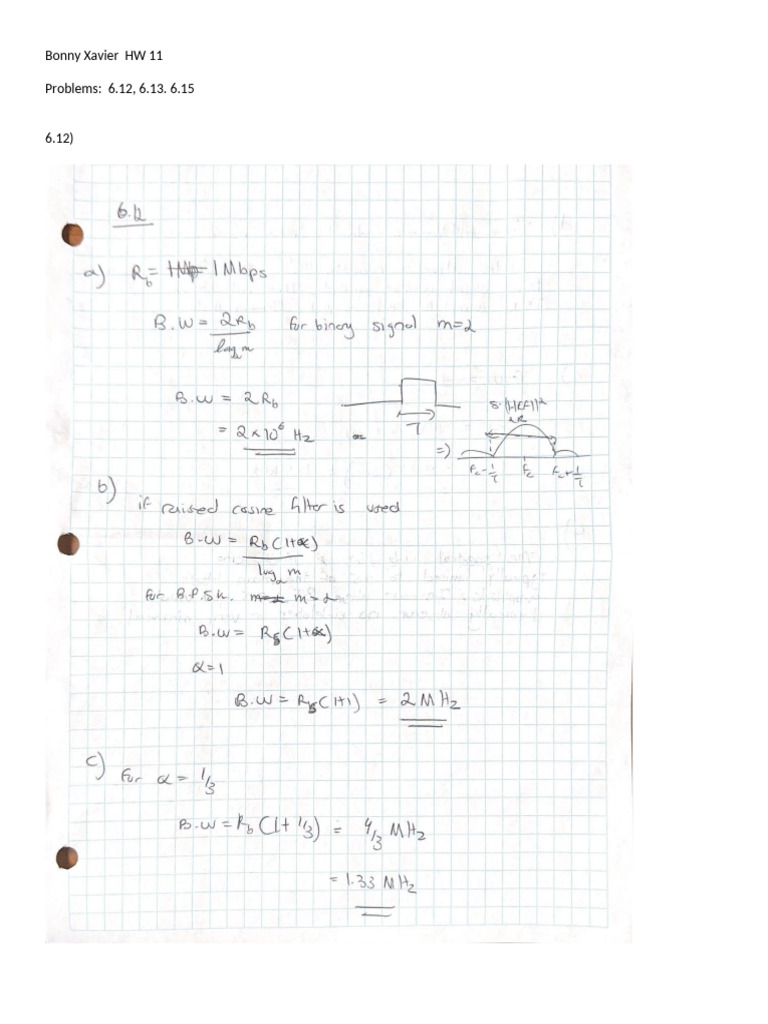 Bonny Xavier HW 11
Problems: 6.12, 6.13. 6.15
6.12)
6.12
a) R_b = 1 Mbps
B.W = 2R_b / log_2 m for binary signal m=2
B.W = 2 R_b
= 2×10^6 Hz
T
S.|H(F)|^2
2R
=>)
f_c - 1/T f_c f_c + 1/T
b)
if raised cosine filter is used
B.W = R_b(1+α) / log_2 m
for B.P.S.K. m=2
B.W = R_b(1+α)
α=1
B.W = R_b(1+1) = 2 MHz
c) For α = 1/3
B.W = R_b(1+1/3) = 4/3 MHz
= 1.33 MHz